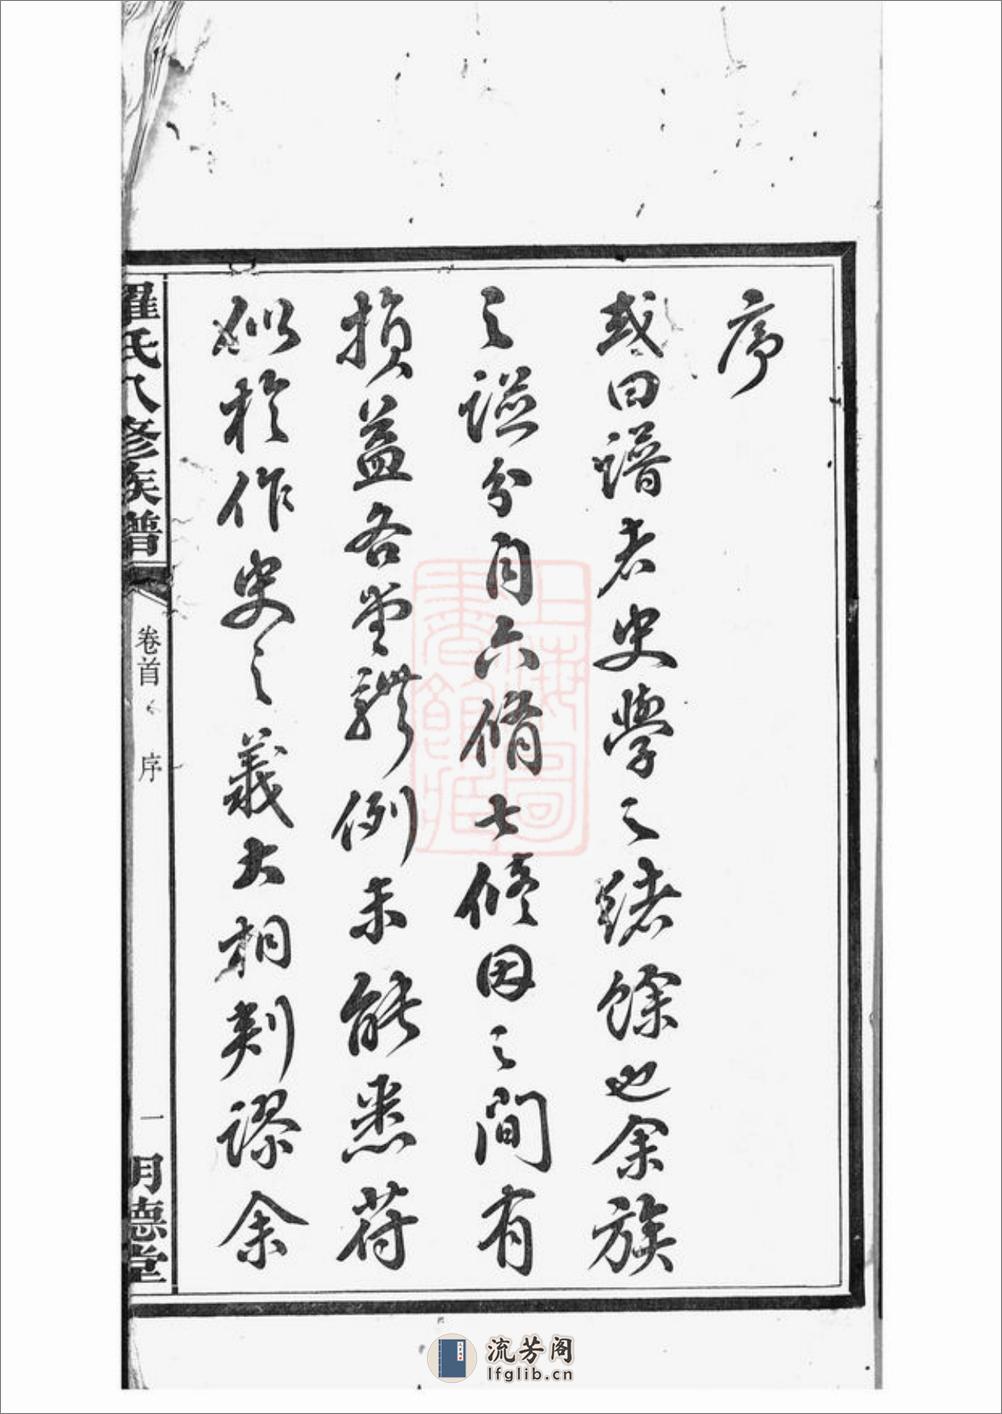 序
或曰譜者史學之緒餘也余族
之譜分自六脩七修因之間有
損益各堂體例未能悉符
似於作史之義大相刺謬余
羅氏八修族譜
卷首 序
一
明德堂
上海圖書館藏
流芳阁
lfglib.cn